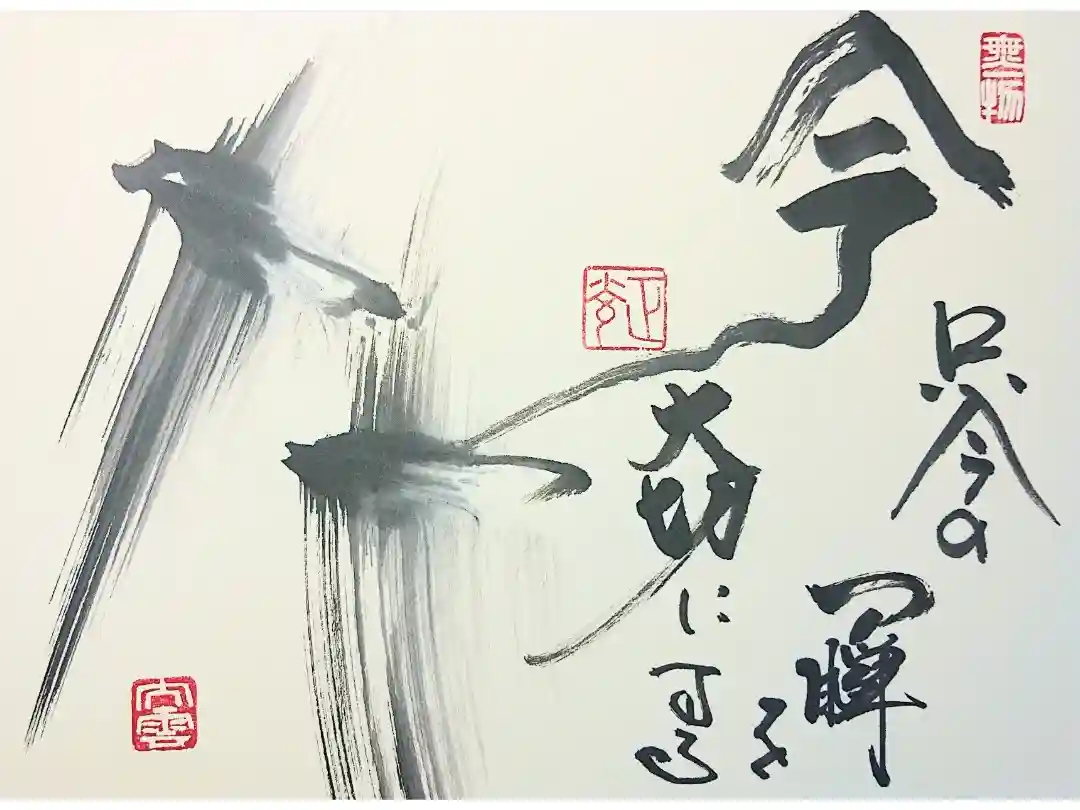 無一物
今
只今の
一瞬を
大切に
する